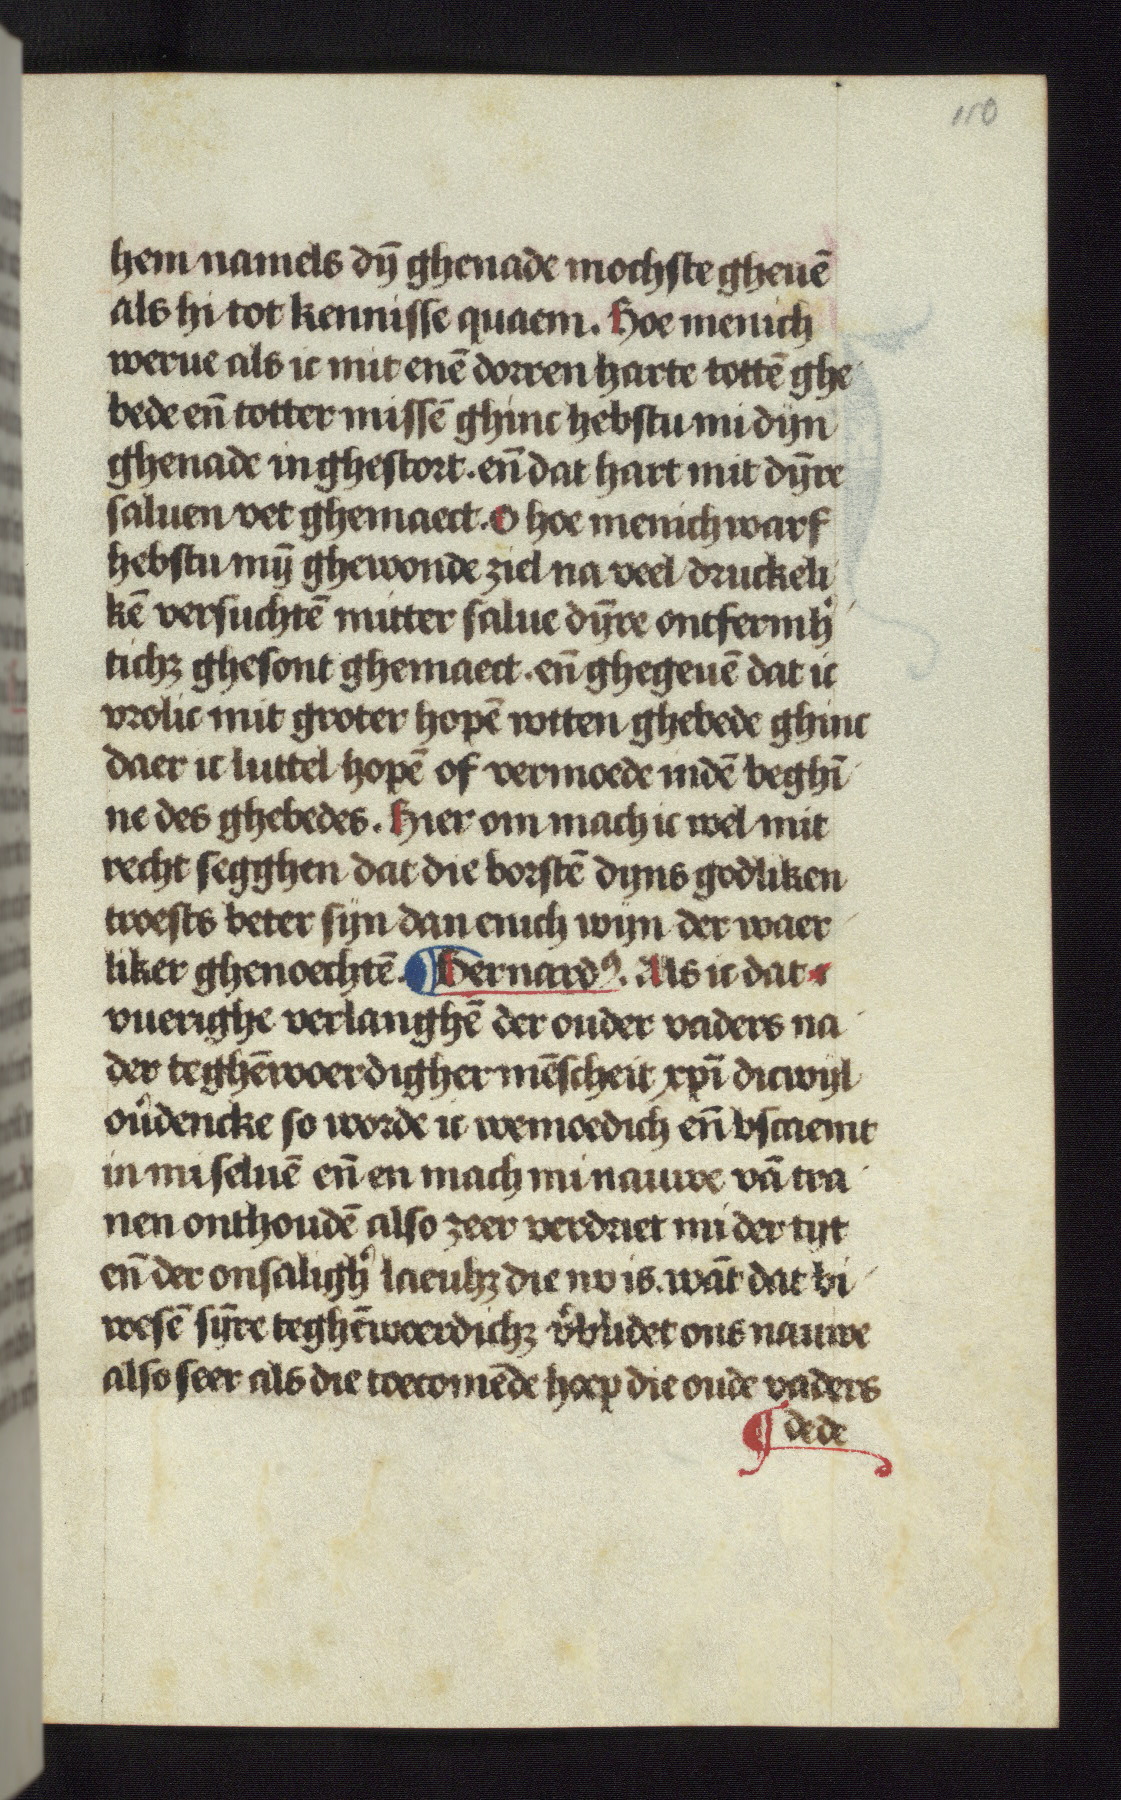 110
hem namels dȳ ghenade mochste gheuē
als hi tot kennisse quaem. Hoe menich
werue als ic mit enē dorren harte tottē ghe
bede en̄ totter missē ghinc hebstu mi dijn
ghenade in ghestort. en̄ dat hart mit dȳre
saluen vet ghemaect. O hoe menich warf
hebstu mȳ ghewonde ziel na veel druckeli
kē versuchtē mitter salue dȳre ontfermh̾
tichꝫ ghesont ghemaect. en̄ ghegeuē dat ic
vrolic mit groter hopē wtten ghebede ghinc
daer ic luttel hopē of vermoede indē beghī
ne des ghebedes. Hier om mach ic wel mit
recht segghen dat die borstē dyns godliken
troests beter sijn dan enich wijn der waer
liker ghenoechtē. Bernardꝰ. Als ic dat
vuerighe verlanghē der ouder vaders na
der teghēwoerdigher mēscheit xpī dicwijl
ou̾dencke so worde ic wemoedich en̄ v̾scaemt
in mi seluē en̄ en mach mi nauwe vā tra
nen onthoudē also zeer verdriet mi der tijt
en̄ der onsaligh̾ laeuhꝫ die nv is. wāt dat bi
wesē sȳre teghēwoerdichꝫ v̾blidet ons nauwe
also seer als die toecomēde hoep die oude vaders
dede